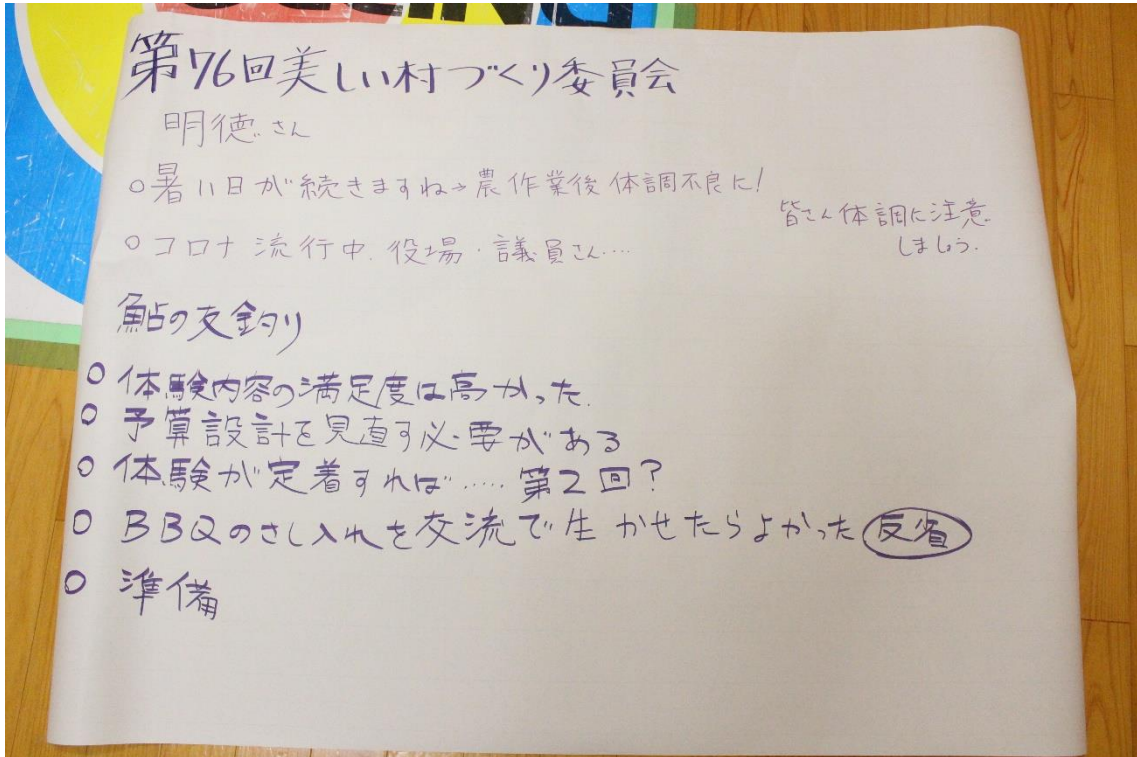 第76回美しい村づくり委員会
明徳さん
○暑い日が続きますね→農作業後体調不良に!
皆さん体調に注意
しましょう.
○コロナ流行中.役場・議員さん....
鮎の友釣り
○体験内容の満足度は高かった.
○予算設計を見直す必要がある
○体験が定着すれば.....第2回?
○BBQのさし入れを交流で生かせたらよかった 反省
○準備